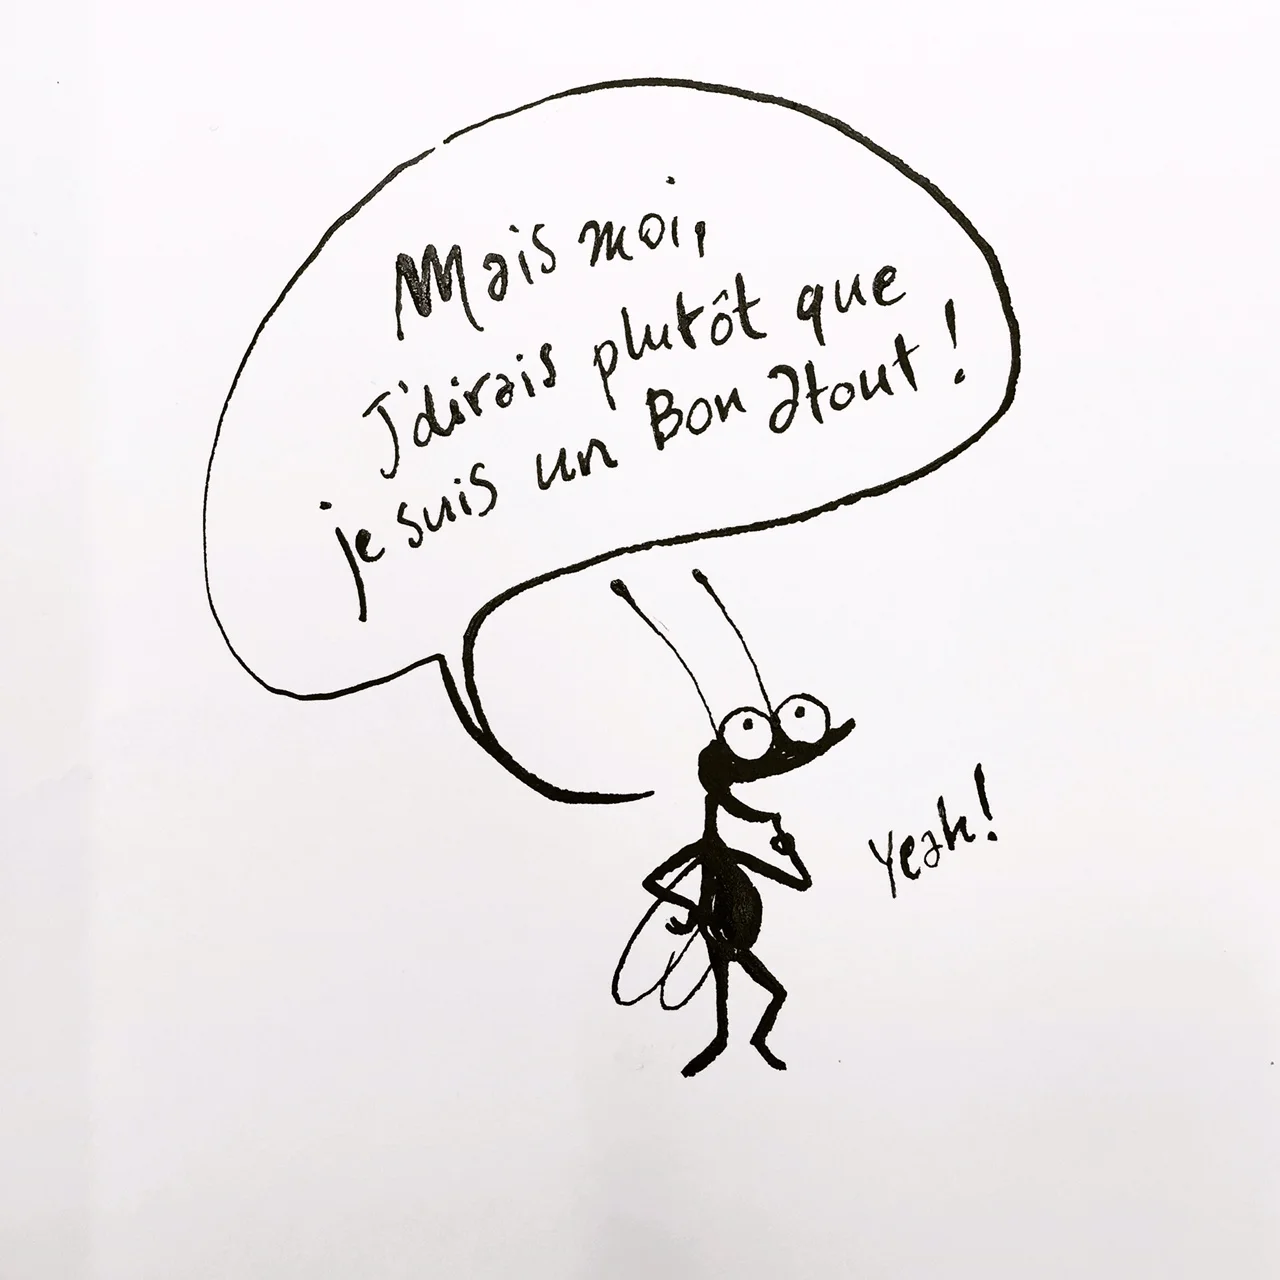 Mais moi,
J'dirais plutôt que
je suis un Bon atout !
Yeah!